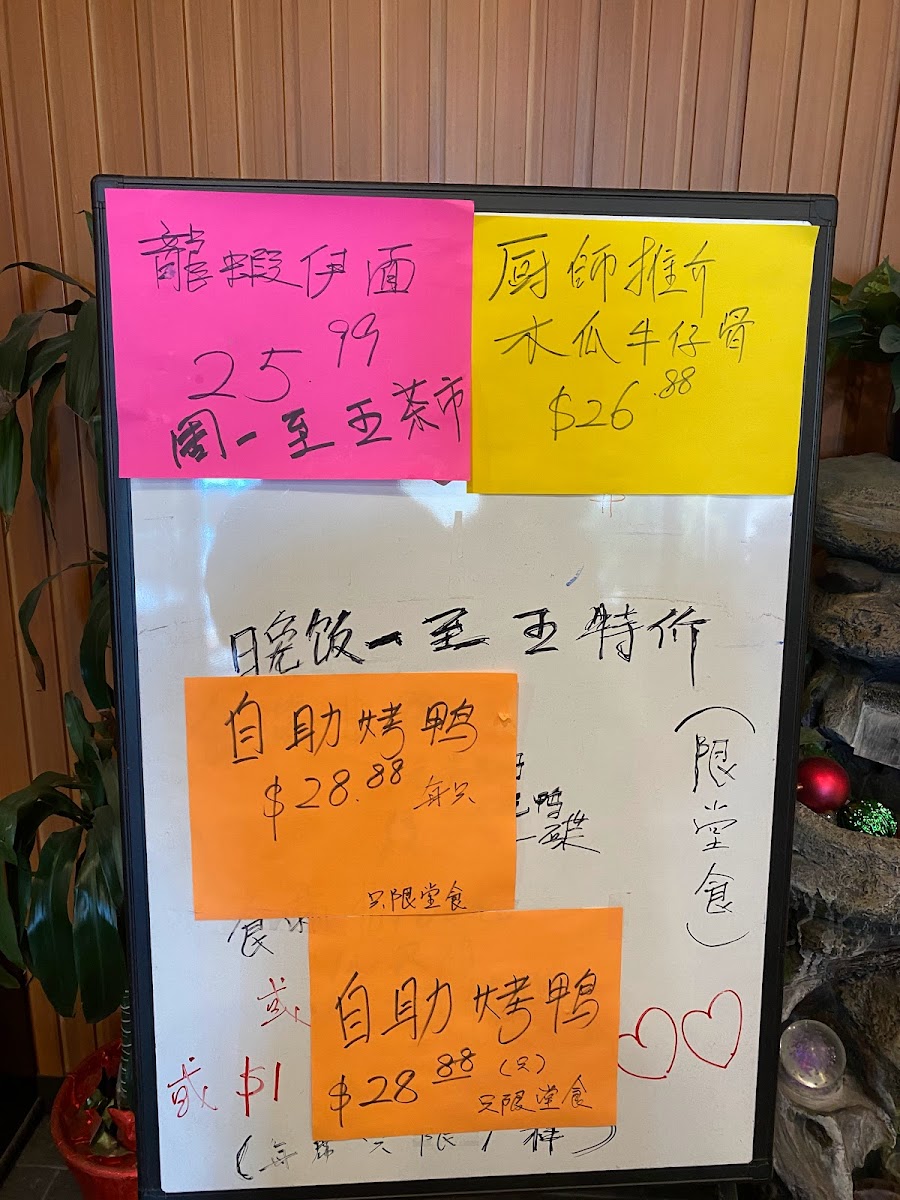 龍蝦伊面
25.99
周一至五茶市
厨師推介
木瓜牛仔骨
$26.88
晚饭一至五特价
(限堂食)
自助烤鸭
$28.88 每只
只限堂食
鸭
一碟
食
或
自助烤鸭
$28.88 (只)
只限堂食
或 $1
(每 只限1样)